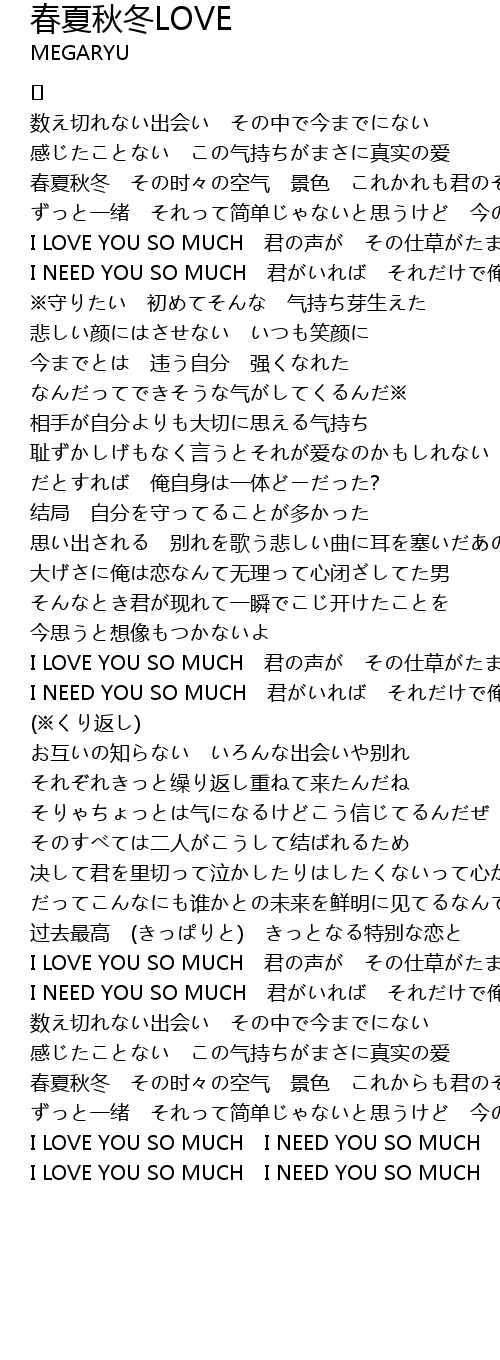 春夏秋冬LOVE
MEGARYU
[]
数え切れない出会い　その中で今までにない
感じたことない　この气持ちがまさに真实の爱
春夏秋冬　その时々の空气　景色　これかれも君のそ
ずっと一绪　それって简单じゃないと思うけど　今の
I LOVE YOU SO MUCH　君の声が　その仕草がたま
I NEED YOU SO MUCH　君がいれば　それだけで俺
※守りたい　初めてそんな　气持ち芽生えた
悲しい颜にはさせない　いつも笑颜に
今までとは　违う自分　强くなれた
なんだってできそうな气がしてくるんだ※
相手が自分よりも大切に思える气持ち
耻ずかしげもなく言うとそれが爱なのかもしれない
だとすれば　俺自身は一体どーだった?
结局　自分を守ってることが多かった
思い出される　别れを歌う悲しい曲に耳を塞いだあの
大げさに俺は恋なんて无理って心闭ざしてた男
そんなとき君が现れて一瞬でこじ开けたことを
今思うと想像もつかないよ
I LOVE YOU SO MUCH　君の声が　その仕草がたま
I NEED YOU SO MUCH　君がいれば　それだけで俺
(※くり返し)
お互いの知らない　いろんな出会いや别れ
それぞれきっと缲り返し重ねて来たんだね
そりゃちょっとは气になるけどこう信じてるんだぜ
そのすべては二人がこうして结ばれるため
决して君を里切って泣かしたりはしたくないって心か
だってこんなにも谁かとの未来を鲜明に见てるなんて
过去最高　(きっぱりと)　きっとなる特别な恋と
I LOVE YOU SO MUCH　君の声が　その仕草がたま
I NEED YOU SO MUCH　君がいれば　それだけで俺
数え切れない出会い　その中で今までにない
感じたことない　この气持ちがまさに真实の爱
春夏秋冬　その时々の空气　景色　これからも君のそ
ずっと一绪　それって简单じゃないと思うけど　今の
I LOVE YOU SO MUCH　I NEED YOU SO MUCH
I LOVE YOU SO MUCH　I NEED YOU SO MUCH